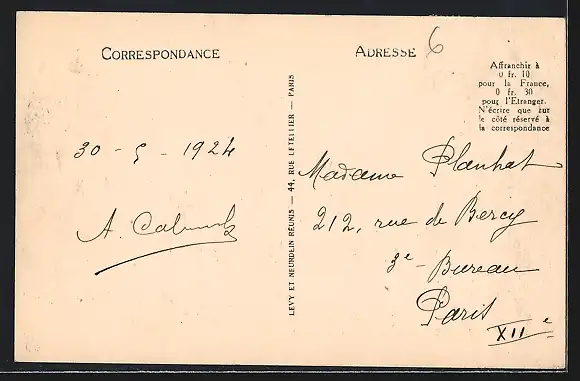 CORRESPONDANCE
ADRESSE
6
Affranchir à
0 fr. 10
pour la France,
0 fr. 30
pour l'Etranger.
N'écrire que sur
le côté réservé à
la correspondance
30 - 5 - 1924
A.
LEVY ET NEURDEIN RÉUNIS — 44, RUE LETELLIER — PARIS
Madame Planhat
212, rue de Bercy
3e - Bureau
Paris
XIIe